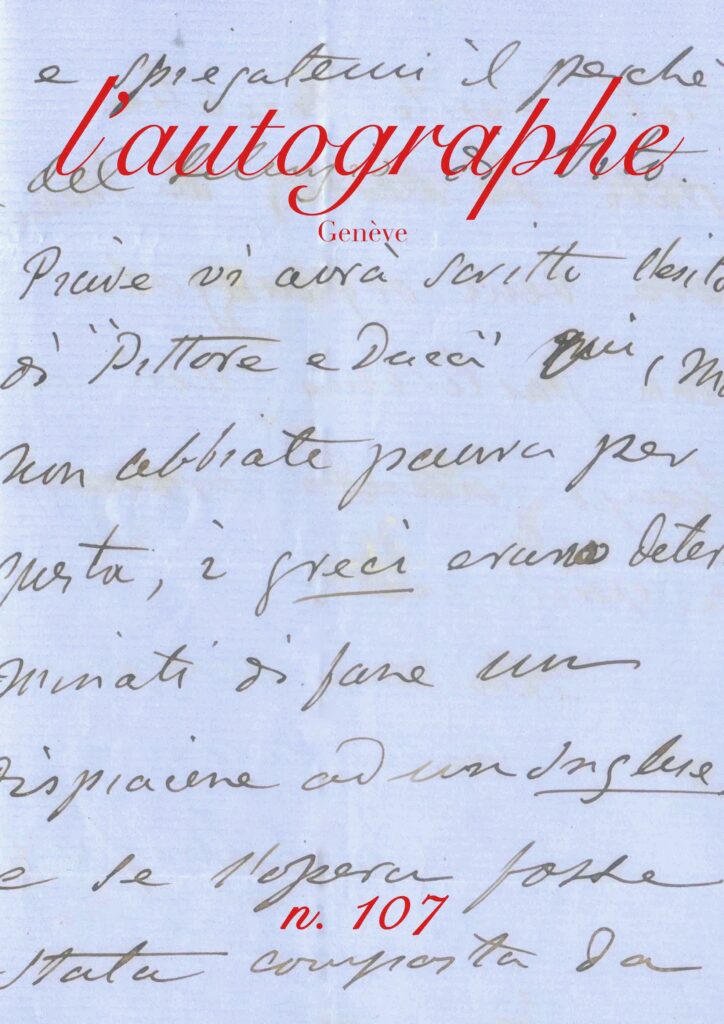 e spiegatemi il perchè
l'autographe
del di Vito.
Genève
Piave vi avrà scritto l'esito
di "Pittore e Duca" qui, ma
non abbiate paura per
questa, i greci erano deter
minati di fare un
dispiacere ad un Inglese,
e se l'opera fosse
n. 107
stata composta da